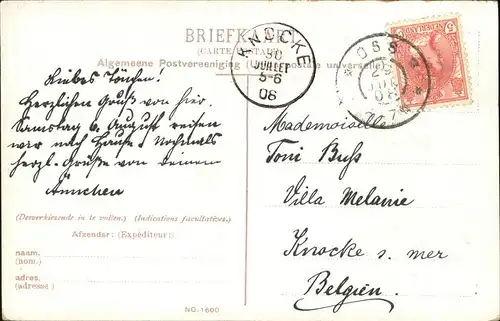 BRIEFKAART
(CARTE POSTALE)
Algemeene Postvereeniging (Union postale universelle)
KNOCKE
30
JUILLET
5-6
06
OSS
Liebes Tönchen!
Herzlichen Gruß von hier.
Samstag 6. August reisen
wir nach Hause. Nochmals
herzl. Grüße von deinem
Ännchen
Mademoiselle
Toni Buss
Villa Melanie
Knocke s. mer
Belgien.
(Desverkiezende in te vullen.) (Indications facultatives.)
Afzender: (Expéditeur):
naam,
(nom.)
adres,
(adresse)
NO. 1600